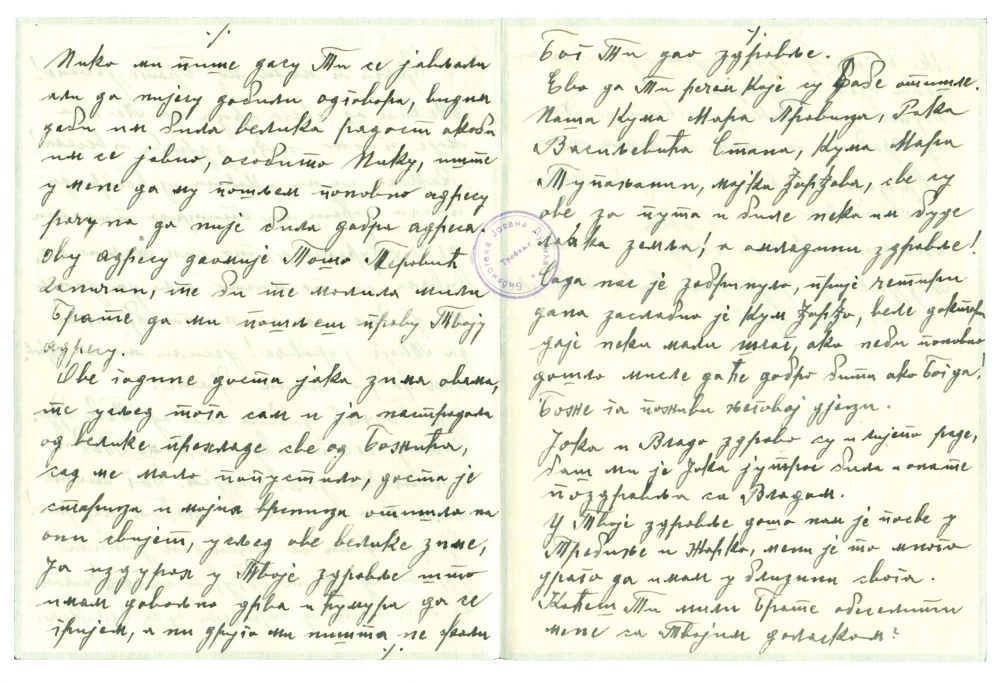 ./.
Нико ми пише да су Ти се јављали
али да нијесу добили одговора, видим
даби им била велика радост акоби
им се јавио, особито Нику, иште
у мене да му пошљем поновно адресу
рачуна да није била добра адреса
ову адресу даомије Тошо Перовић
те би те молила мили
Брате да ми пошљеш праву Твоју
адресу.
Ове године доста јака зима овамо,
те услед тога сам и ја настрадала
од велике прехладе све од Божића,
сад ме мало попустило, доста је
старица и мојих врсница отишло на
они свијет, услед ове велике зиме,
Ја издурах у Твоје здравље што
имам довољно дрва и ћумура да се
гријем, а ни друго ми ништа не фали
./.
./.
Бог Ти дао здравље.
Ево да Ти речем које су Бабе отишле.
Наша Кума Мара Правица, Рака
Васиљевића Стана, Кума Мара
Тупањанин, мајка Јорјова, све су
ове за пута и биле нека им буде
лака земља! а омладини здравље!
Сада нас је забринуло, прије четири
дана заслабио је Кум веле доктори
даје неки мали шлаг, ако неби поновно
дошло мисле даће добро бити ако Богда!
Боже га поживи његовој дјеци.
Јока и Владо здраво су и лијепо раде,
баш ми је Јока јутрос била и опште
поздравља са Владом.
У Твоје здравље дошо нам је посве у
Требиње и Жарко, мени је то много
драго да имам у близини свога.
Хоћеш Ти мили Брате обеселити
мене са Твојим доласком?
Библиотека Јована Дучића
Требиње